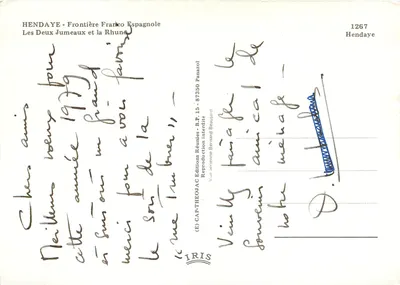 HENDAYE - Frontière Franco Espagnole
Les Deux Jumeaux et la Rhune
1267
Hendaye
Chers amis
Meilleurs voeux pour
cette année 1979
et surtout un grand
merci pour avoir favorisé
le soir de la
"
(E) CAP-THEOJAC Editions Réunies - B.P. 15 - 87350 Panazol
Reproduction interdite
IRIS
partager le
souvenir amical de
notre ménage -